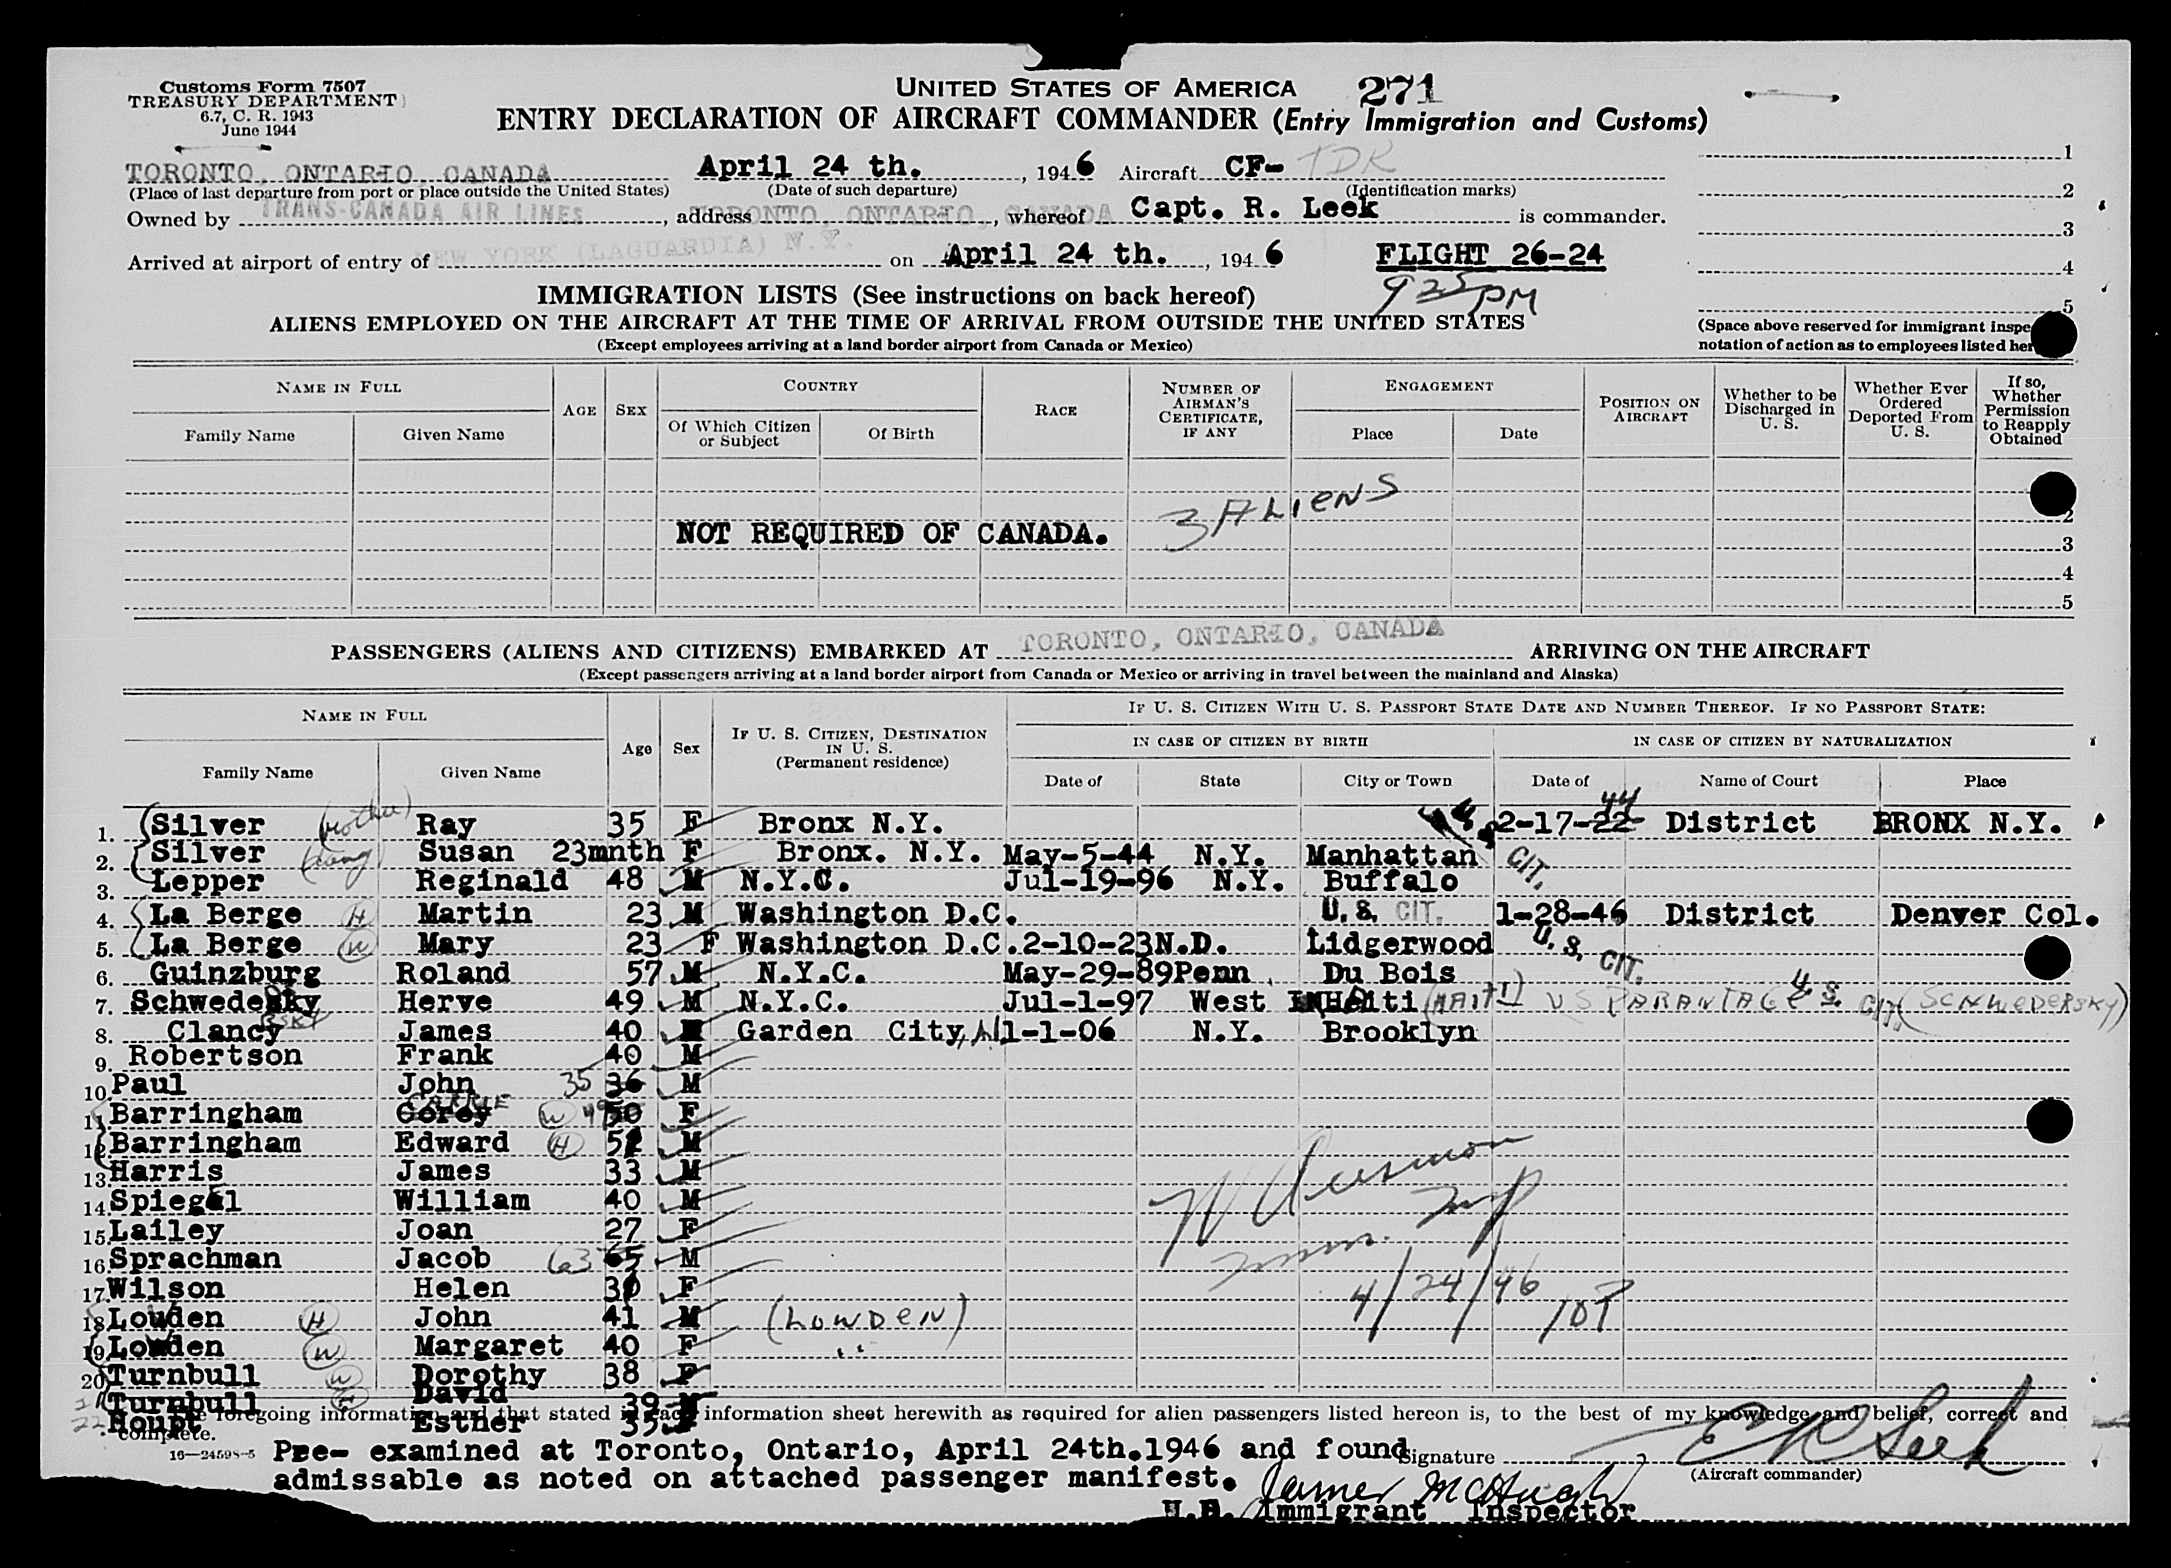 Customs Form 7507
TREASURY DEPARTMENT
6.7, C. R. 1943
June 1944
UNITED STATES OF AMERICA 271
ENTRY DECLARATION OF AIRCRAFT COMMANDER (Entry Immigration and Customs)
TORONTO, ONTARIO, CANADA April 24 th., 1946 Aircraft CF- TDK 1
(Place of last departure from port or place outside the United States) (Date of such departure) (Identification marks) 2
Owned by TRANS-CANADA AIR LINES, address TORONTO, ONTARIO, CANADA, whereof Capt. R. Leek is commander. 3
Arrived at airport of entry of NEW YORK (LAGUARDIA) N.Y. on April 24 th., 1946 FLIGHT 26-24 4
925 PM
IMMIGRATION LISTS (See instructions on back hereof) 5
ALIENS EMPLOYED ON THE AIRCRAFT AT THE TIME OF ARRIVAL FROM OUTSIDE THE UNITED STATES
(Except employees arriving at a land border airport from Canada or Mexico)
(Space above reserved for immigrant inspe
notation of action as to employees listed her
NAME IN FULL AGE SEX COUNTRY RACE NUMBER OF AIRMAN'S CERTIFICATE, IF ANY ENGAGEMENT POSITION ON AIRCRAFT Whether to be Discharged in U. S. Whether Ever Ordered Deported From U. S. If so, Whether Permission to Reapply Obtained
Family Name Given Name Of Which Citizen or Subject Of Birth Place Date
3 ALIENS
2
NOT REQUIRED OF CANADA.
3
4
5
PASSENGERS (ALIENS AND CITIZENS) EMBARKED AT TORONTO, ONTARIO, CANADA ARRIVING ON THE AIRCRAFT
(Except passengers arriving at a land border airport from Canada or Mexico or arriving in travel between the mainland and Alaska)
NAME IN FULL Age Sex IF U. S. CITIZEN, DESTINATION IN U. S. (Permanent residence) IF U. S. CITIZEN WITH U. S. PASSPORT STATE DATE AND NUMBER THEREOF. IF NO PASSPORT STATE:
IN CASE OF CITIZEN BY BIRTH IN CASE OF CITIZEN BY NATURALIZATION
Family Name Given Name Date of State City or Town Date of Name of Court Place
1. Silver (mother) Ray 35 F Bronx N.Y. 2-17-22 44 District BRONX N.Y.
2. Silver Susan 23mnth F Bronx. N.Y. May-5-44 N.Y. Manhattan CIT.
3. Lepper Reginald 48 M N.Y.C. Jul-19-96 N.Y. Buffalo
4. La Berge H Martin 23 M Washington D.C. U.S. CIT. 1-28-46 District Denver Col.
5. La Berge W Mary 23 F Washington D.C. 2-10-23 N.D. Lidgerwood U.S. CIT.
6. Guinzburg Roland 57 M N.Y.C. May-29-89 Penn Du Bois
7. Schwedesky Herve 49 M N.Y.C. Jul-1-97 West Haiti (HAITI) US PARANTAGE U.S. CIT. (SCHWEDERSKY)
8. Clancy James 40 M Garden City, 11-1-06 N.Y. Brooklyn
9. Robertson Frank 40 M
10. Paul John 35 36 M
11. Barringham Gorey CARRIE W 49 50 F
12. Barringham Edward H 51 M
13. Harris James 33 M
14. Spiegel William 40 M
15. Lailey Joan 27 F
16. Sprachman Jacob 63 65 M
17. Wilson Helen F
18. Lowden H John 41 M (LOWDEN)
19. Lowden W Margaret 40 F "
20. Turnbull W Dorothy 38 F
Turnbull H David 39 M
22. Houpt Esther 35
foregoing information and that stated in each information sheet herewith as required for alien passengers listed hereon is, to the best of my knowledge and belief, correct and
complete.
16—24598-5 Pre- examined at Toronto, Ontario, April 24th.1946 and found Signature E R Leek
admissable as noted on attached passenger manifest. (Aircraft commander)
James McHugh
U.S. Immigrant Inspector
4/24/46 10P